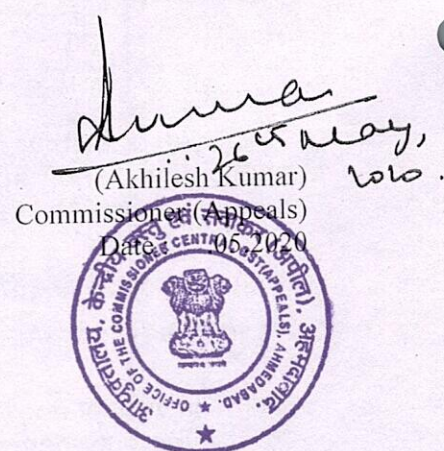 Kumar
26th May,
2020.
(Akhilesh Kumar)
Commissioner (Appeals)
Date : .05.2020
आयुक्तालय, केन्द्रीय वस्तु एवं सेवाकर (अपील), अहमदाबाद.
OFFICE OF THE COMMISSIONER CENTRAL GST (APPEALS) AHMEDABAD.
सत्यमेव जयते